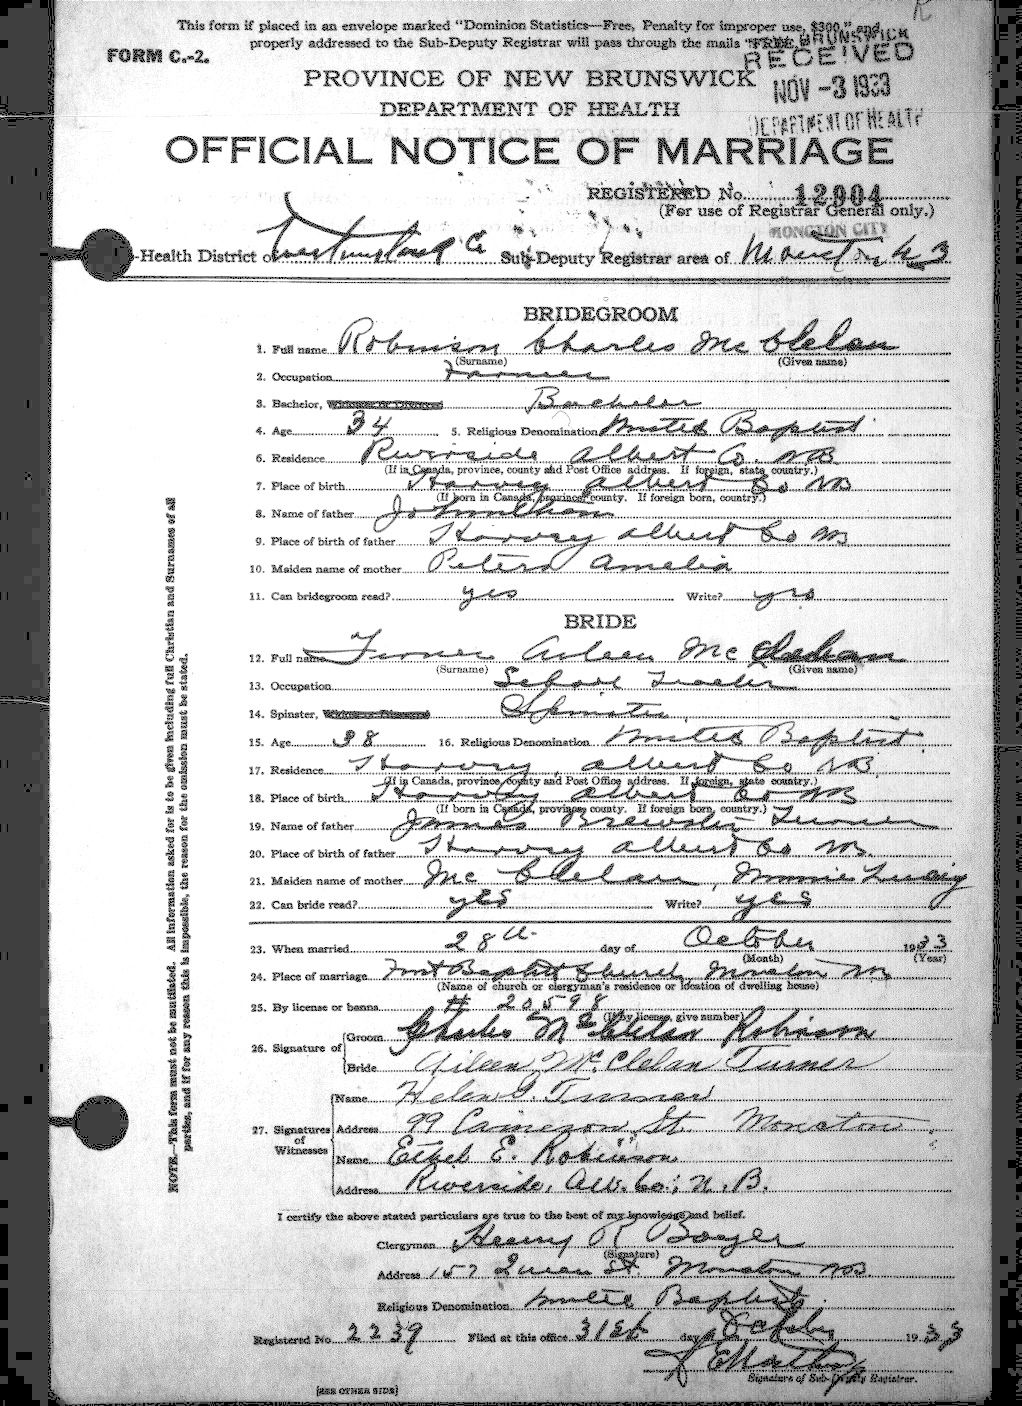 This form if placed in an envelope marked "Dominion Statistics—Free, Penalty for improper use, $300," and
properly addressed to the Sub-Deputy Registrar will pass through the mails "FREE."
FORM C.-2.
NEW BRUNSWICK
RECEIVED
NOV -3 1933
DEPARTMENT OF HEALTH
PROVINCE OF NEW BRUNSWICK
DEPARTMENT OF HEALTH
OFFICIAL NOTICE OF MARRIAGE
REGISTERED No. 12904
(For use of Registrar General only.)
MONCTON CITY
-Health District of Westmorland Co Sub-Deputy Registrar area of Moncton
BRIDEGROOM
1. Full name Robinson Charles McClelan
(Surname) (Given name)
2. Occupation Farmer
3. Bachelor, Widower or Divorced Bachelor
4. Age 34 5. Religious Denomination United Baptist
6. Residence Riverside Albert Co. NB
(If in Canada, province, county and Post Office address. If foreign, state country.)
7. Place of birth Harvey Albert Co NB
(If born in Canada, province, county. If foreign born, country.)
8. Name of father
9. Place of birth of father Harvey Albert Co NB
10. Maiden name of mother Peters Amelia
11. Can bridegroom read? yes Write? yes
BRIDE
12. Full name Turner Aileen McClelan
(Surname) (Given name)
13. Occupation School Teacher
14. Spinster, Widow or Divorced Spinster
15. Age 38 16. Religious Denomination United Baptist
17. Residence Harvey Albert Co NB
(If in Canada, province, county and Post Office address. If foreign, state country.)
18. Place of birth Harvey Albert Co NB
(If born in Canada, province, county. If foreign born, country.)
19. Name of father James Brewster Turner
20. Place of birth of father Harvey Albert Co NB
21. Maiden name of mother McClelan, Minnie
22. Can bride read? yes Write? yes
23. When married 28th day of October 1933
(Month) (Year)
24. Place of marriage First Baptist Church, Moncton NB
(Name of church or clergyman's residence or location of dwelling house)
25. By license or banns # 20598
(If by license, give number)
26. Signature of Groom Charles McClelan Robinson
Bride Aileen McClelan Turner
27. Signatures of Witnesses
Name Helen G. Turner
Address 99 Cameron St. Moncton
Name Ethel E. Robinson
Address Riverside, Alb. Co., N.B.
I certify the above stated particulars are true to the best of my knowledge and belief.
Clergyman Henry R Boyer
(Signature)
Address 157 Queen St. Moncton NB
Religious Denomination United Baptist
Registered No. 2239 Filed at this office 31st day of October 1933
Signature of Sub-Deputy Registrar.
[SEE OTHER SIDE]
NOTE.—This form must not be mutilated. All information asked for is to be given including full Christian and Surnames of all
parties, and if for any reason this is impossible, the reason for the omission must be stated.